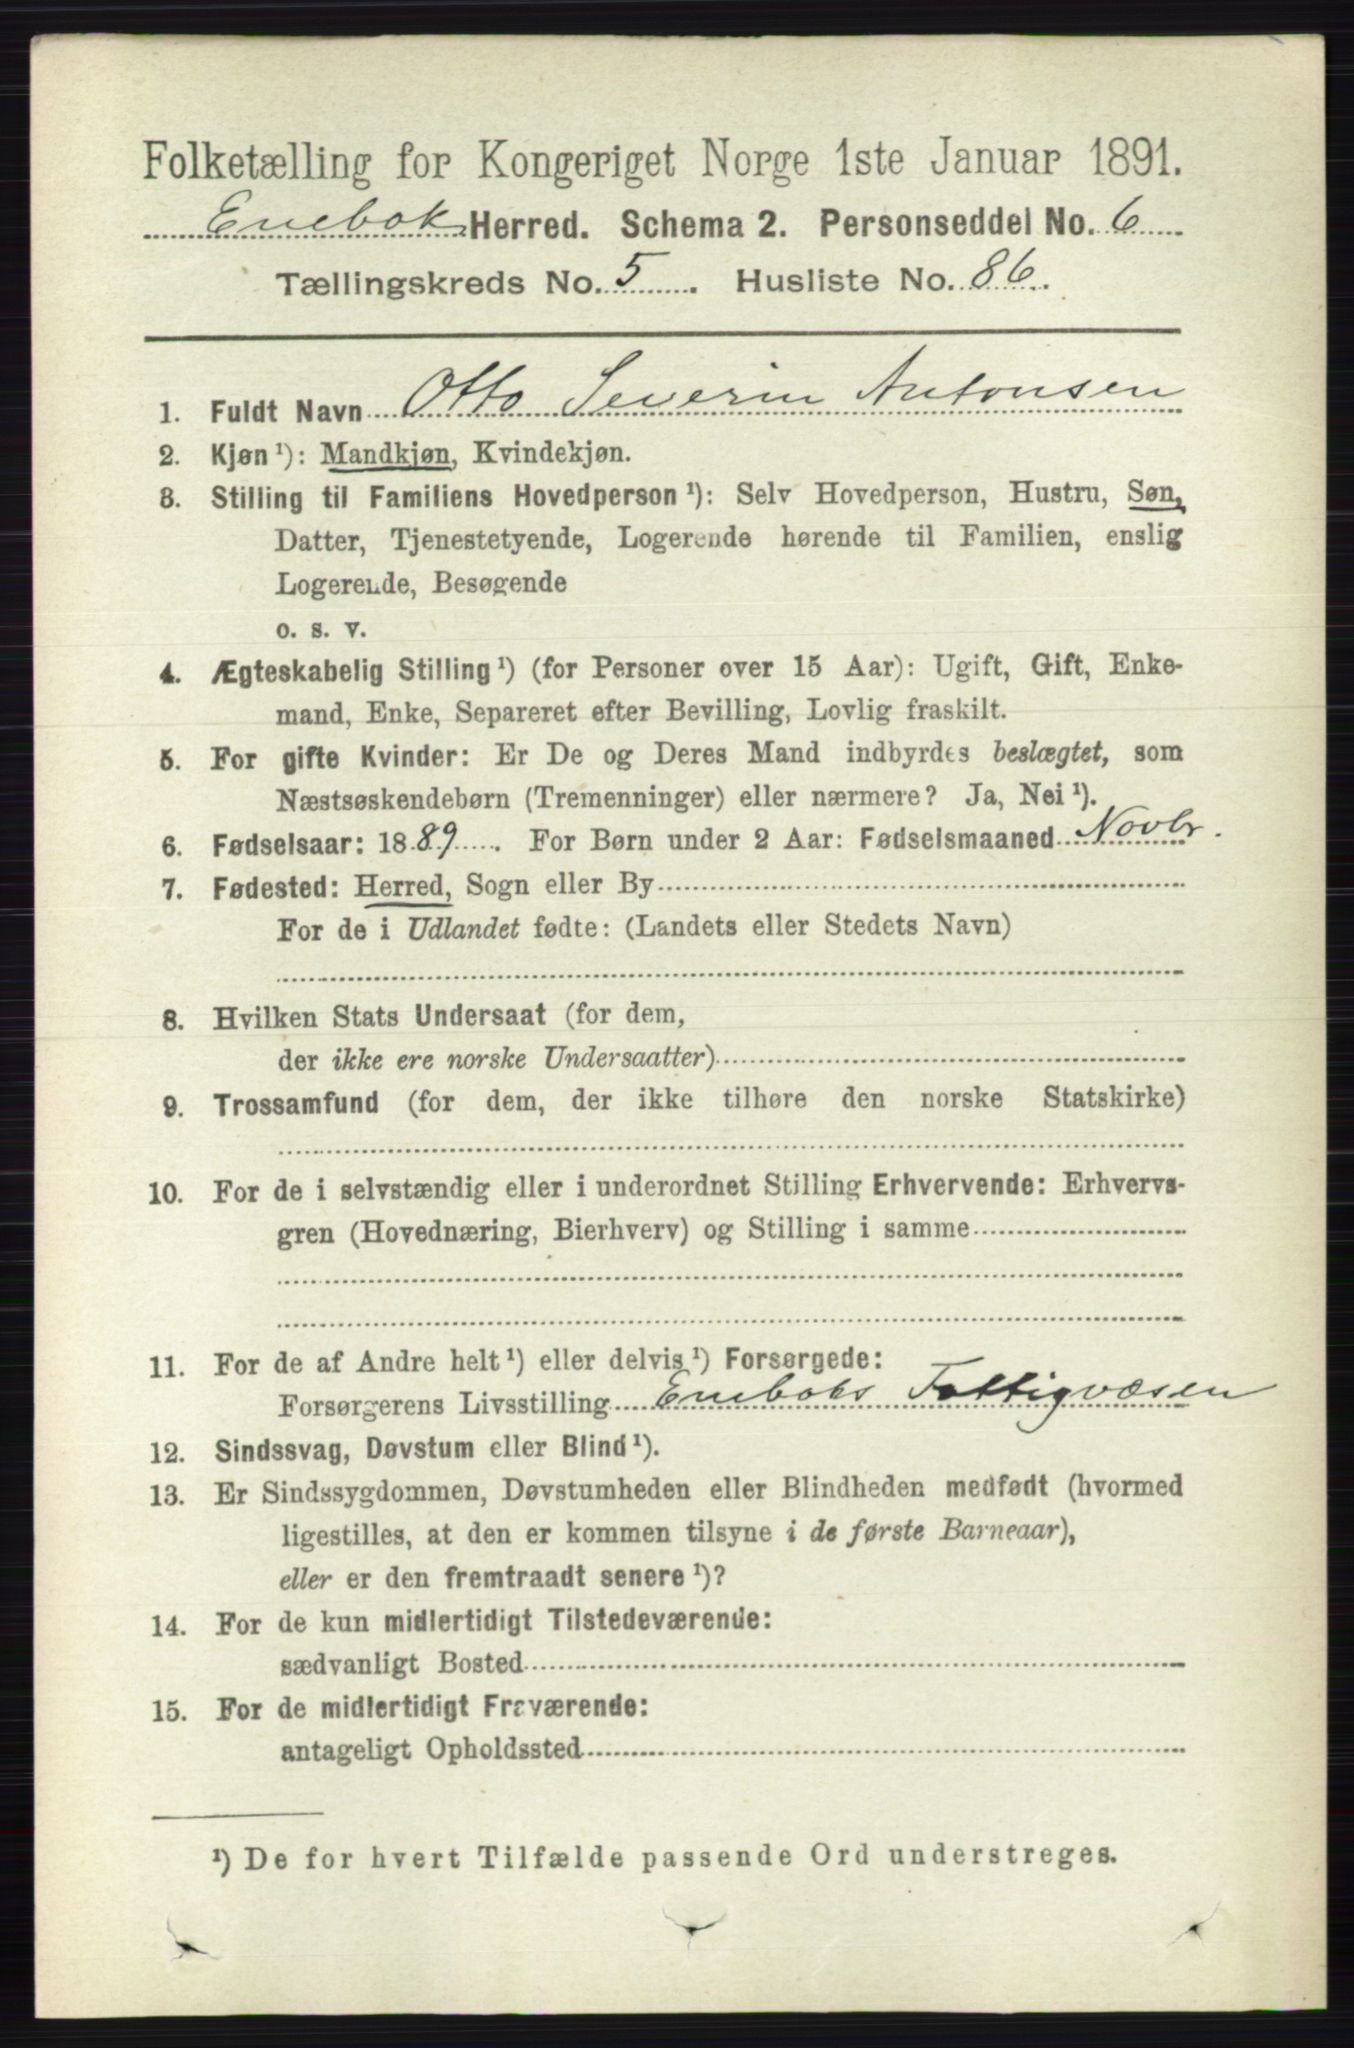 Folketælling for Kongeriget Norge 1ste Januar 1891.
Enebok Herred. Schema 2. Personseddel No. 6
Tællingskreds No. 5. Husliste No. 86.
1. Fuldt Navn Otto Severin Antonsen
2. Kjøn ¹): Mandkjøn, Kvindekjøn.
3. Stilling til Familiens Hovedperson ¹): Selv Hovedperson, Hustru, Søn,
Datter, Tjenestetyende, Logerende hørende til Familien, enslig
Logerende, Besøgende
o. s. v.
4. Ægteskabelig Stilling ¹) (for Personer over 15 Aar): Ugift, Gift, Enke-
mand, Enke, Separeret efter Bevilling, Lovlig fraskilt.
5. For gifte Kvinder: Er De og Deres Mand indbyrdes beslægtet, som
Næstsøskendebørn (Tremenninger) eller nærmere? Ja, Nei ¹).
6. Fødselsaar: 1889. For Børn under 2 Aar: Fødselsmaaned Novbr.
7. Fødested: Herred, Sogn eller By
For de i Udlandet fødte: (Landets eller Stedets Navn)
8. Hvilken Stats Undersaat (for dem,
der ikke ere norske Undersaatter)
9. Trossamfund (for dem, der ikke tilhøre den norske Statskirke)
10. For de i selvstændig eller i underordnet Stilling Erhvervende: Erhvervs-
gren (Hovednæring, Bierhverv) og Stilling i samme
11. For de af Andre helt ¹) eller delvis ¹) Forsørgede:
Forsørgerens Livsstilling Eneboks Fattigvæsen
12. Sindssvag, Døvstum eller Blind ¹).
13. Er Sindssygdommen, Døvstumheden eller Blindheden medfødt (hvormed
ligestilles, at den er kommen tilsyne i de første Barneaar),
eller er den fremtraadt senere ¹)?
14. For de kun midlertidigt Tilstedeværende:
sædvanligt Bosted
15. For de midlertidigt Fraværende:
antageligt Opholdssted
¹) De for hvert Tilfælde passende Ord understreges.